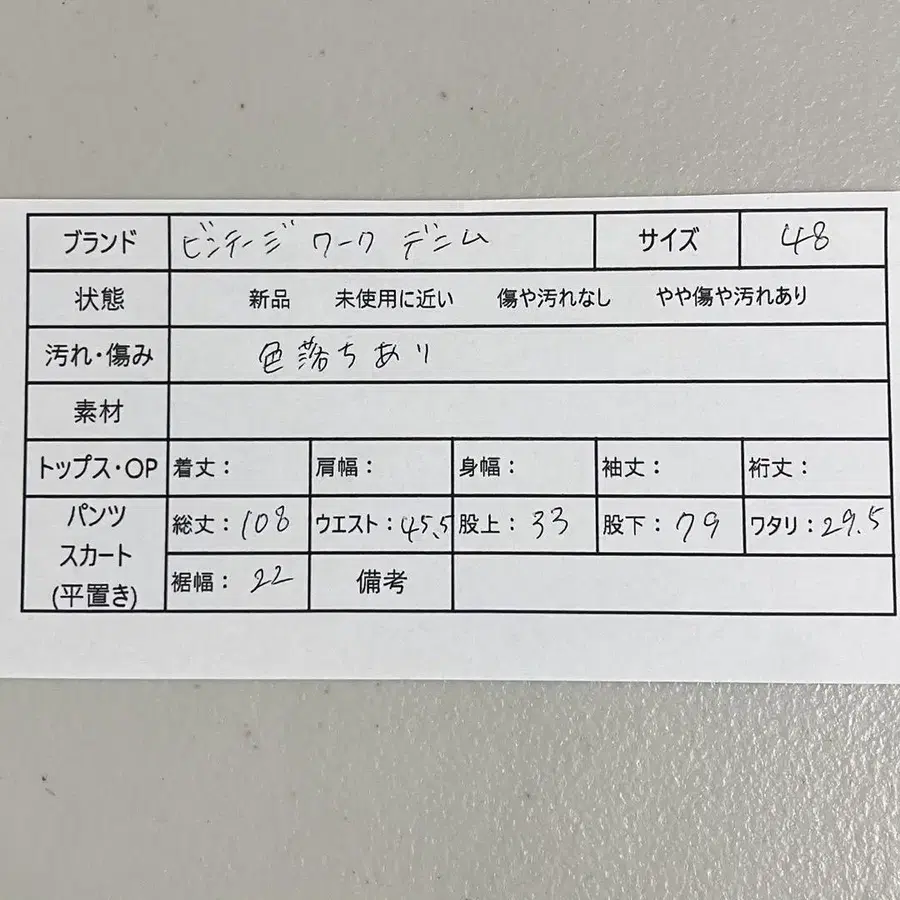 ブランド ビンテージ ワーク デニム サイズ 48
状態 新品 未使用に近い 傷や汚れなし やや傷や汚れあり
汚れ・傷み 色落ちあり
素材
トップス・OP 着丈: 肩幅: 身幅: 袖丈: 裄丈:
パンツ スカート (平置き) 総丈:108 ウエスト:45.5 股上:33 股下:79 ワタリ:29.5
裾幅:22 備考